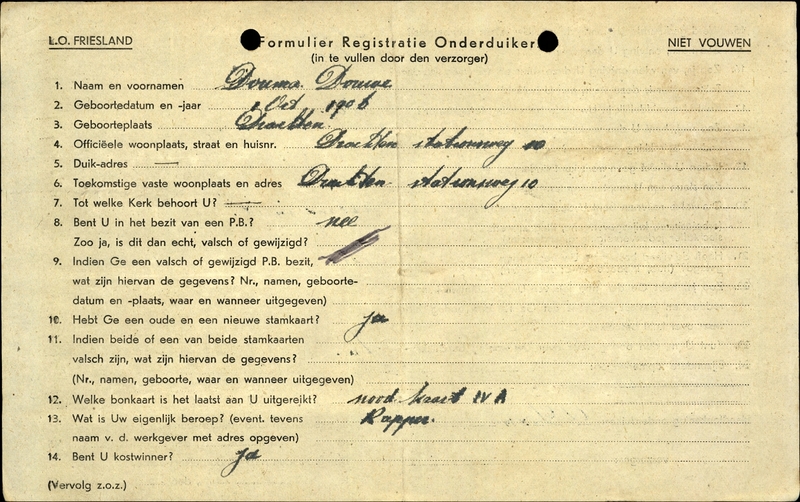 L.O. FRIESLAND
Formulier Registratie Onderduiker
NIET VOUWEN
(in te vullen door den verzorger)
1. Naam en voornamen Douma Douwe
2. Geboortedatum en -jaar 1 Oct 1906
3. Geboorteplaats Drachten
4. Officiëele woonplaats, straat en huisnr. Drachten stationsweg 10
5. Duik-adres —
6. Toekomstige vaste woonplaats en adres Drachten stationsweg 10
7. Tot welke Kerk behoort U? —
8. Bent U in het bezit van een P.B.? nee
Zoo ja, is dit dan echt, valsch of gewijzigd?
9. Indien Ge een valsch of gewijzigd P.B. bezit,
wat zijn hiervan de gegevens? Nr., namen, geboorte-
datum en -plaats, waar en wanneer uitgegeven)
10. Hebt Ge een oude en een nieuwe stamkaart? ja
11. Indien beide of een van beide stamkaarten
valsch zijn, wat zijn hiervan de gegevens?
(Nr., namen, geboorte, waar en wanneer uitgegeven)
12. Welke bonkaart is het laatst aan U uitgereikt? nood kaart IV A
13. Wat is Uw eigenlijk beroep? (event. tevens Kapper.
naam v. d. werkgever met adres opgeven)
14. Bent U kostwinner? ja
(Vervolg z.o.z.)